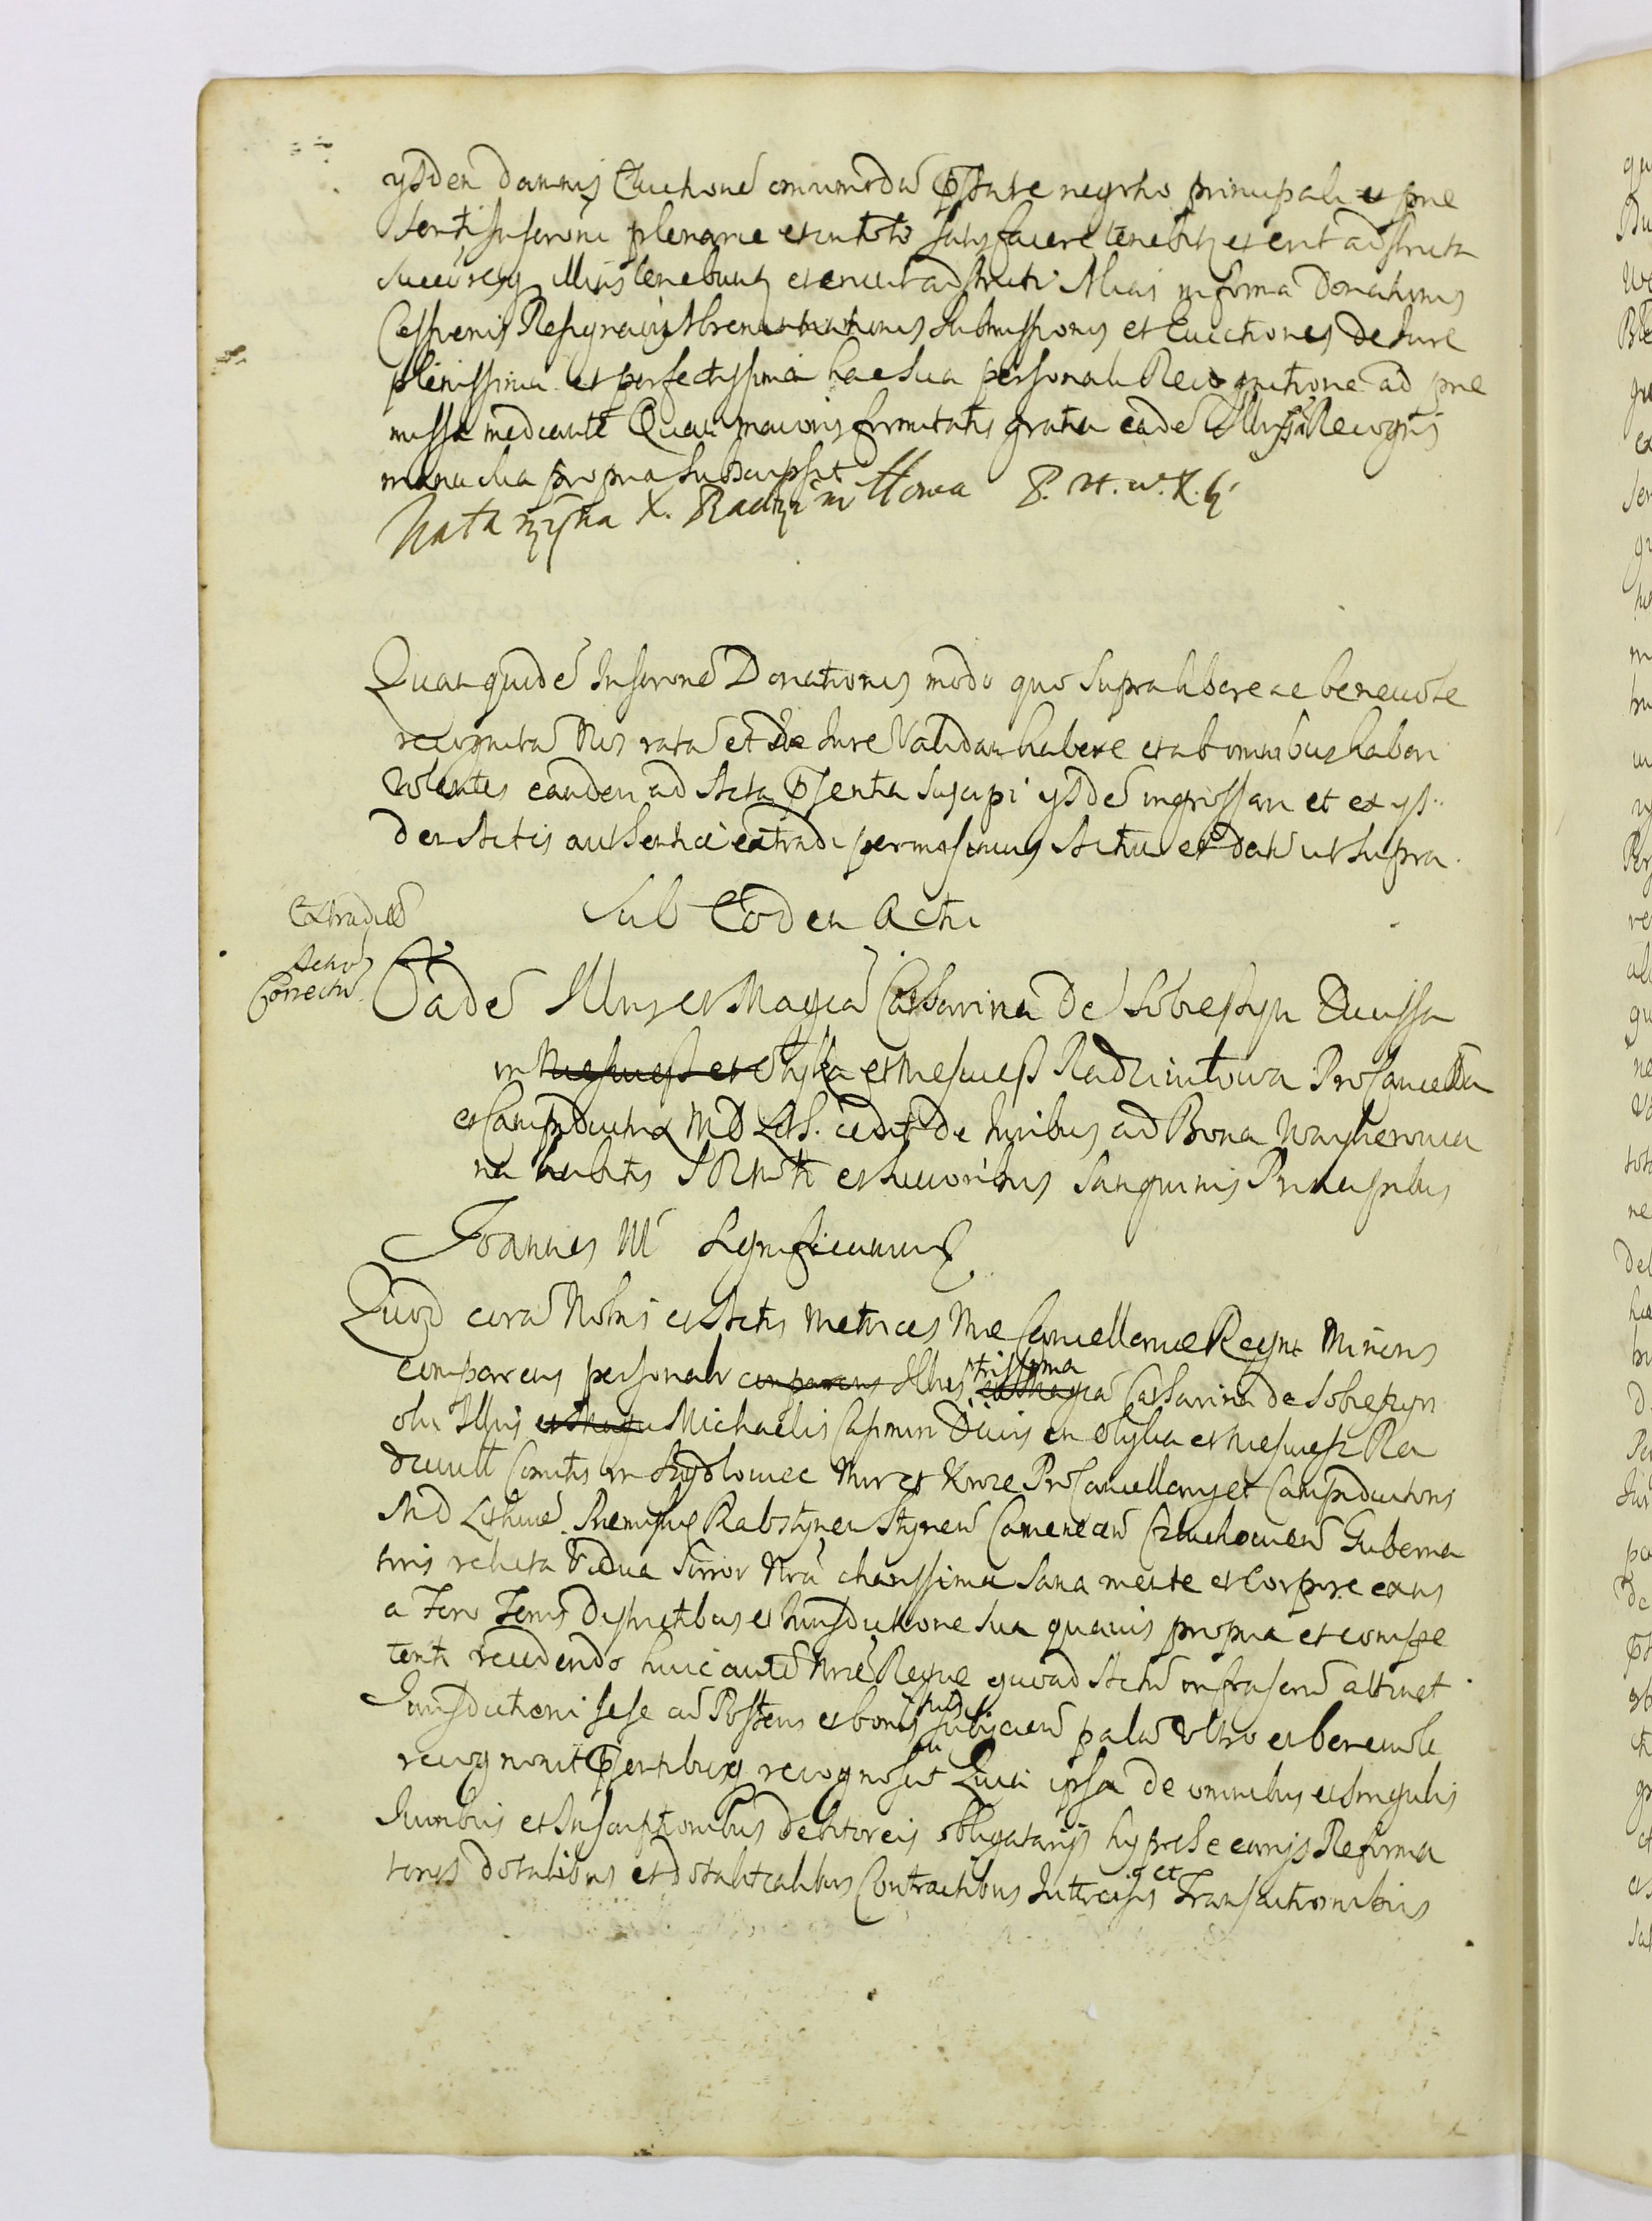 ysdem damnis Evictione omnimoda Pssnte negotio principali et pre
senti Inscroni plenarie et in toto satisfacere tenebitr et erit adstricta
Successoresq illius tenebuntr et erunt adstricti Alias in forma Donationis
Cessionis Resignaonis Abrenuntiationis Submissionis et Evictiones de Iure
plenissima et perfectissima hac Sua personali Recognitione ad pre
missa mediante Quam maioris firmitatis gratia eadem Illustrissa Recognns
manu sua propria subscripsit
Katarzyna X. Radziwillowa P. H. W. X. L.
Quam quidem Inscrone Donationis modo quo supra libere ac benevole
recognita Nos rata et de Iure Validam habere et ab omnibus haberi
Volentes eandem ad Acta Psentia suscipi ysdem ingrossari et ex ys
dem Actis authentice extradi permisimus Actum et datum ut supra.
Sub Eodem Actu
Extradit
Actu
Correctu
Eadem Illuris et Magca Catharina de Sobieszyn Ducissa
in Nieswiesz et Olyka et Nieswiesz Radziwilowa ProCancella
et Campiductrix MD Lit. cedit de Iuribus ad Bona Wayherowia
na habitis SRMti et Successoribus Sanguinis Principibus
Joannes III Significamus
Quod coram Nobis et Actis Metrices Nre Cancellariae Regni Minoris
comparens personalr comparens Illus strissima et Magca Catharina de Sobieszyn
olim Illris et Magci Michaelis Casimiri Ducis in Olyka et Nieswiesz Ra
dziwill Comitis in Szydlowiec Mir et Kroze ProCancellarij et Campiductoris
MD Lithuae Premislie Rabstynen Stynen Camenecen Czluchovien Guberna
toris relicta Vidua Soror Nra charissima Sana mente et Corpore exns
a Foro Terris Districtibus et Iurisdictione sua quavis propria et compe
tenti recedendo huic autem Nre Regie quoad Actum infrascrum attinet
Iurisdictioni sese cum Posteris et bonis suis subijciens palam Vltro et benevole
recognovit Psentibusq recognoscit Quia ipsa de omnibus et singulis
Iuribus et Inscriptionibus debitoreis obligatorijs hypothecarijs Reforma
torijs dotalibus et dotalitialibus Contractibus Intercisis et Transactionibus